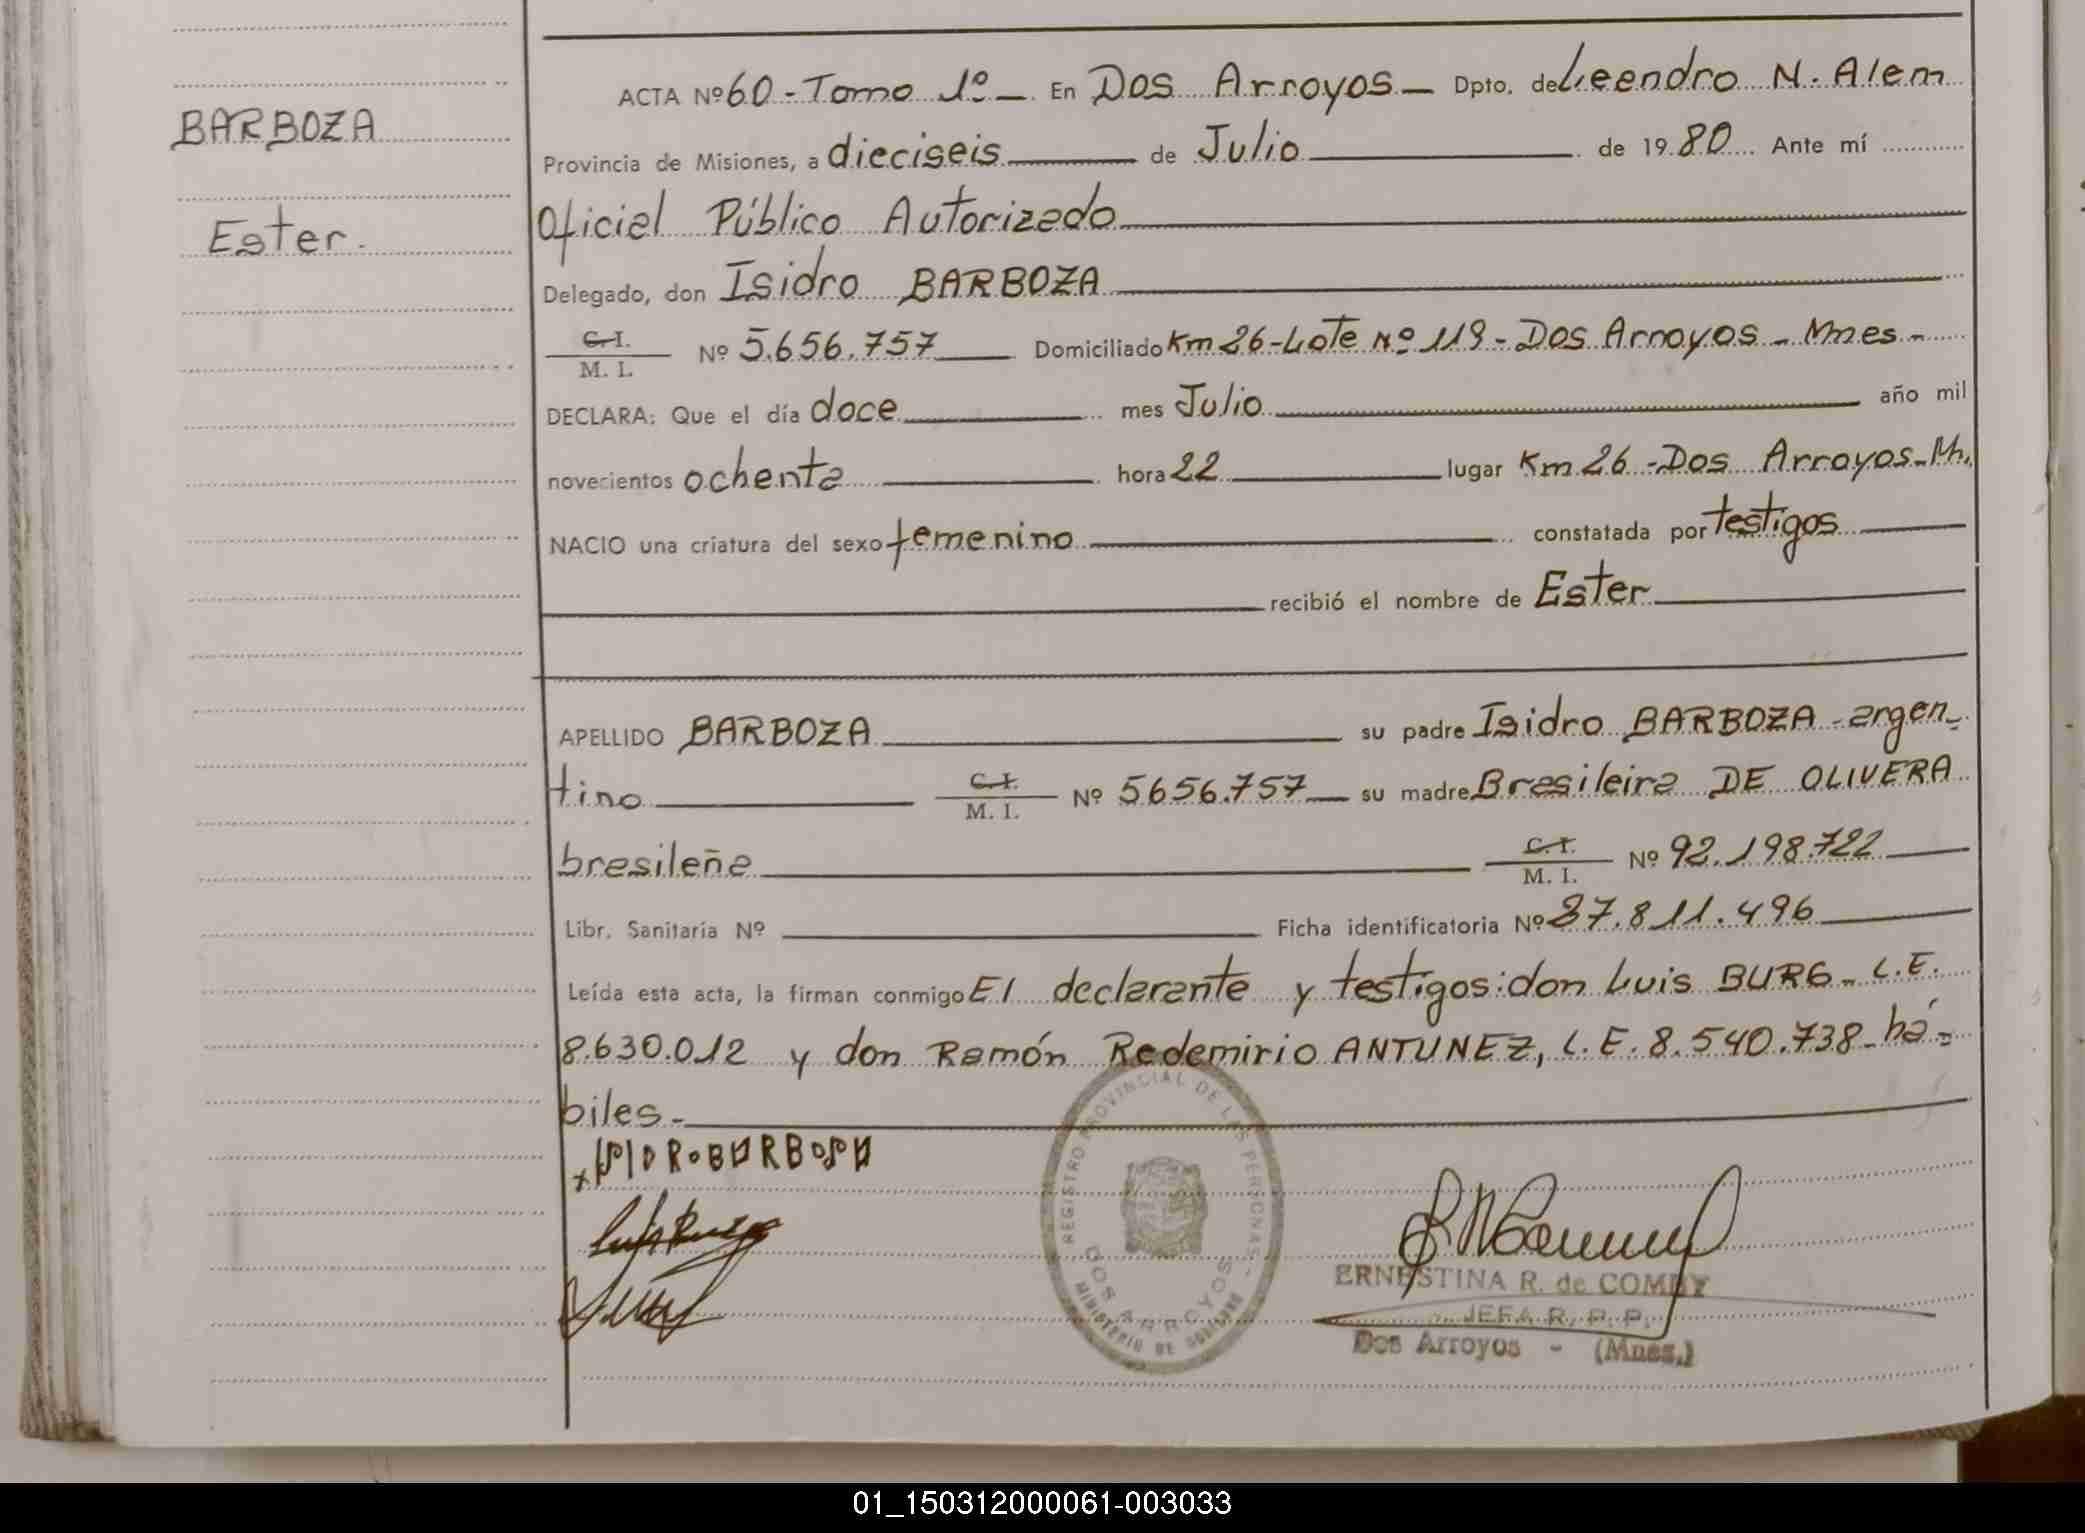 BARBOZA
Ester.
ACTA Nº 60 - Tomo 1º - En Dos Arroyos - Dpto. de Leandro N. Alem
Provincia de Misiones, a dieciseis de Julio de 1980 Ante mí
Oficial Público Autorizado
Delegado, don Isidro BARBOZA
C.I. M. I. Nº 5.656.757 Domiciliado Km 26 - Lote Nº 119 - Dos Arroyos - Mnes -
DECLARA: Que el día doce mes Julio año mil
novecientos ochenta hora 22 lugar Km 26 - Dos Arroyos - Mn.
NACIO una criatura del sexo femenino constatada por testigos
recibió el nombre de Ester
APELLIDO BARBOZA su padre Isidro BARBOZA - argen-
tino C.I. M. I. Nº 5656.757 su madre Brasileira DE OLIVERA
brasileña C.I. M. I. Nº 92.198.722
Libr. Sanitaria Nº Ficha identificatoria Nº 27.811.496
Leída esta acta, la firman conmigo El declarante y testigos: don Luis BURG - L.E.
8.630.012 y don Ramón Redemirio ANTUNEZ, L.E. 8.540.738 - há=
biles -
x ISIDRO BARBOSA
REGISTRO PROVINCIAL DE LAS PERSONAS -
DOS ARROYOS
MINISTERIO DE GOBIERNO
ERNESTINA R. de COMBY
JEFA R. P. P.
Dos Arroyos - (Mnes.)
01_150312000061-003033